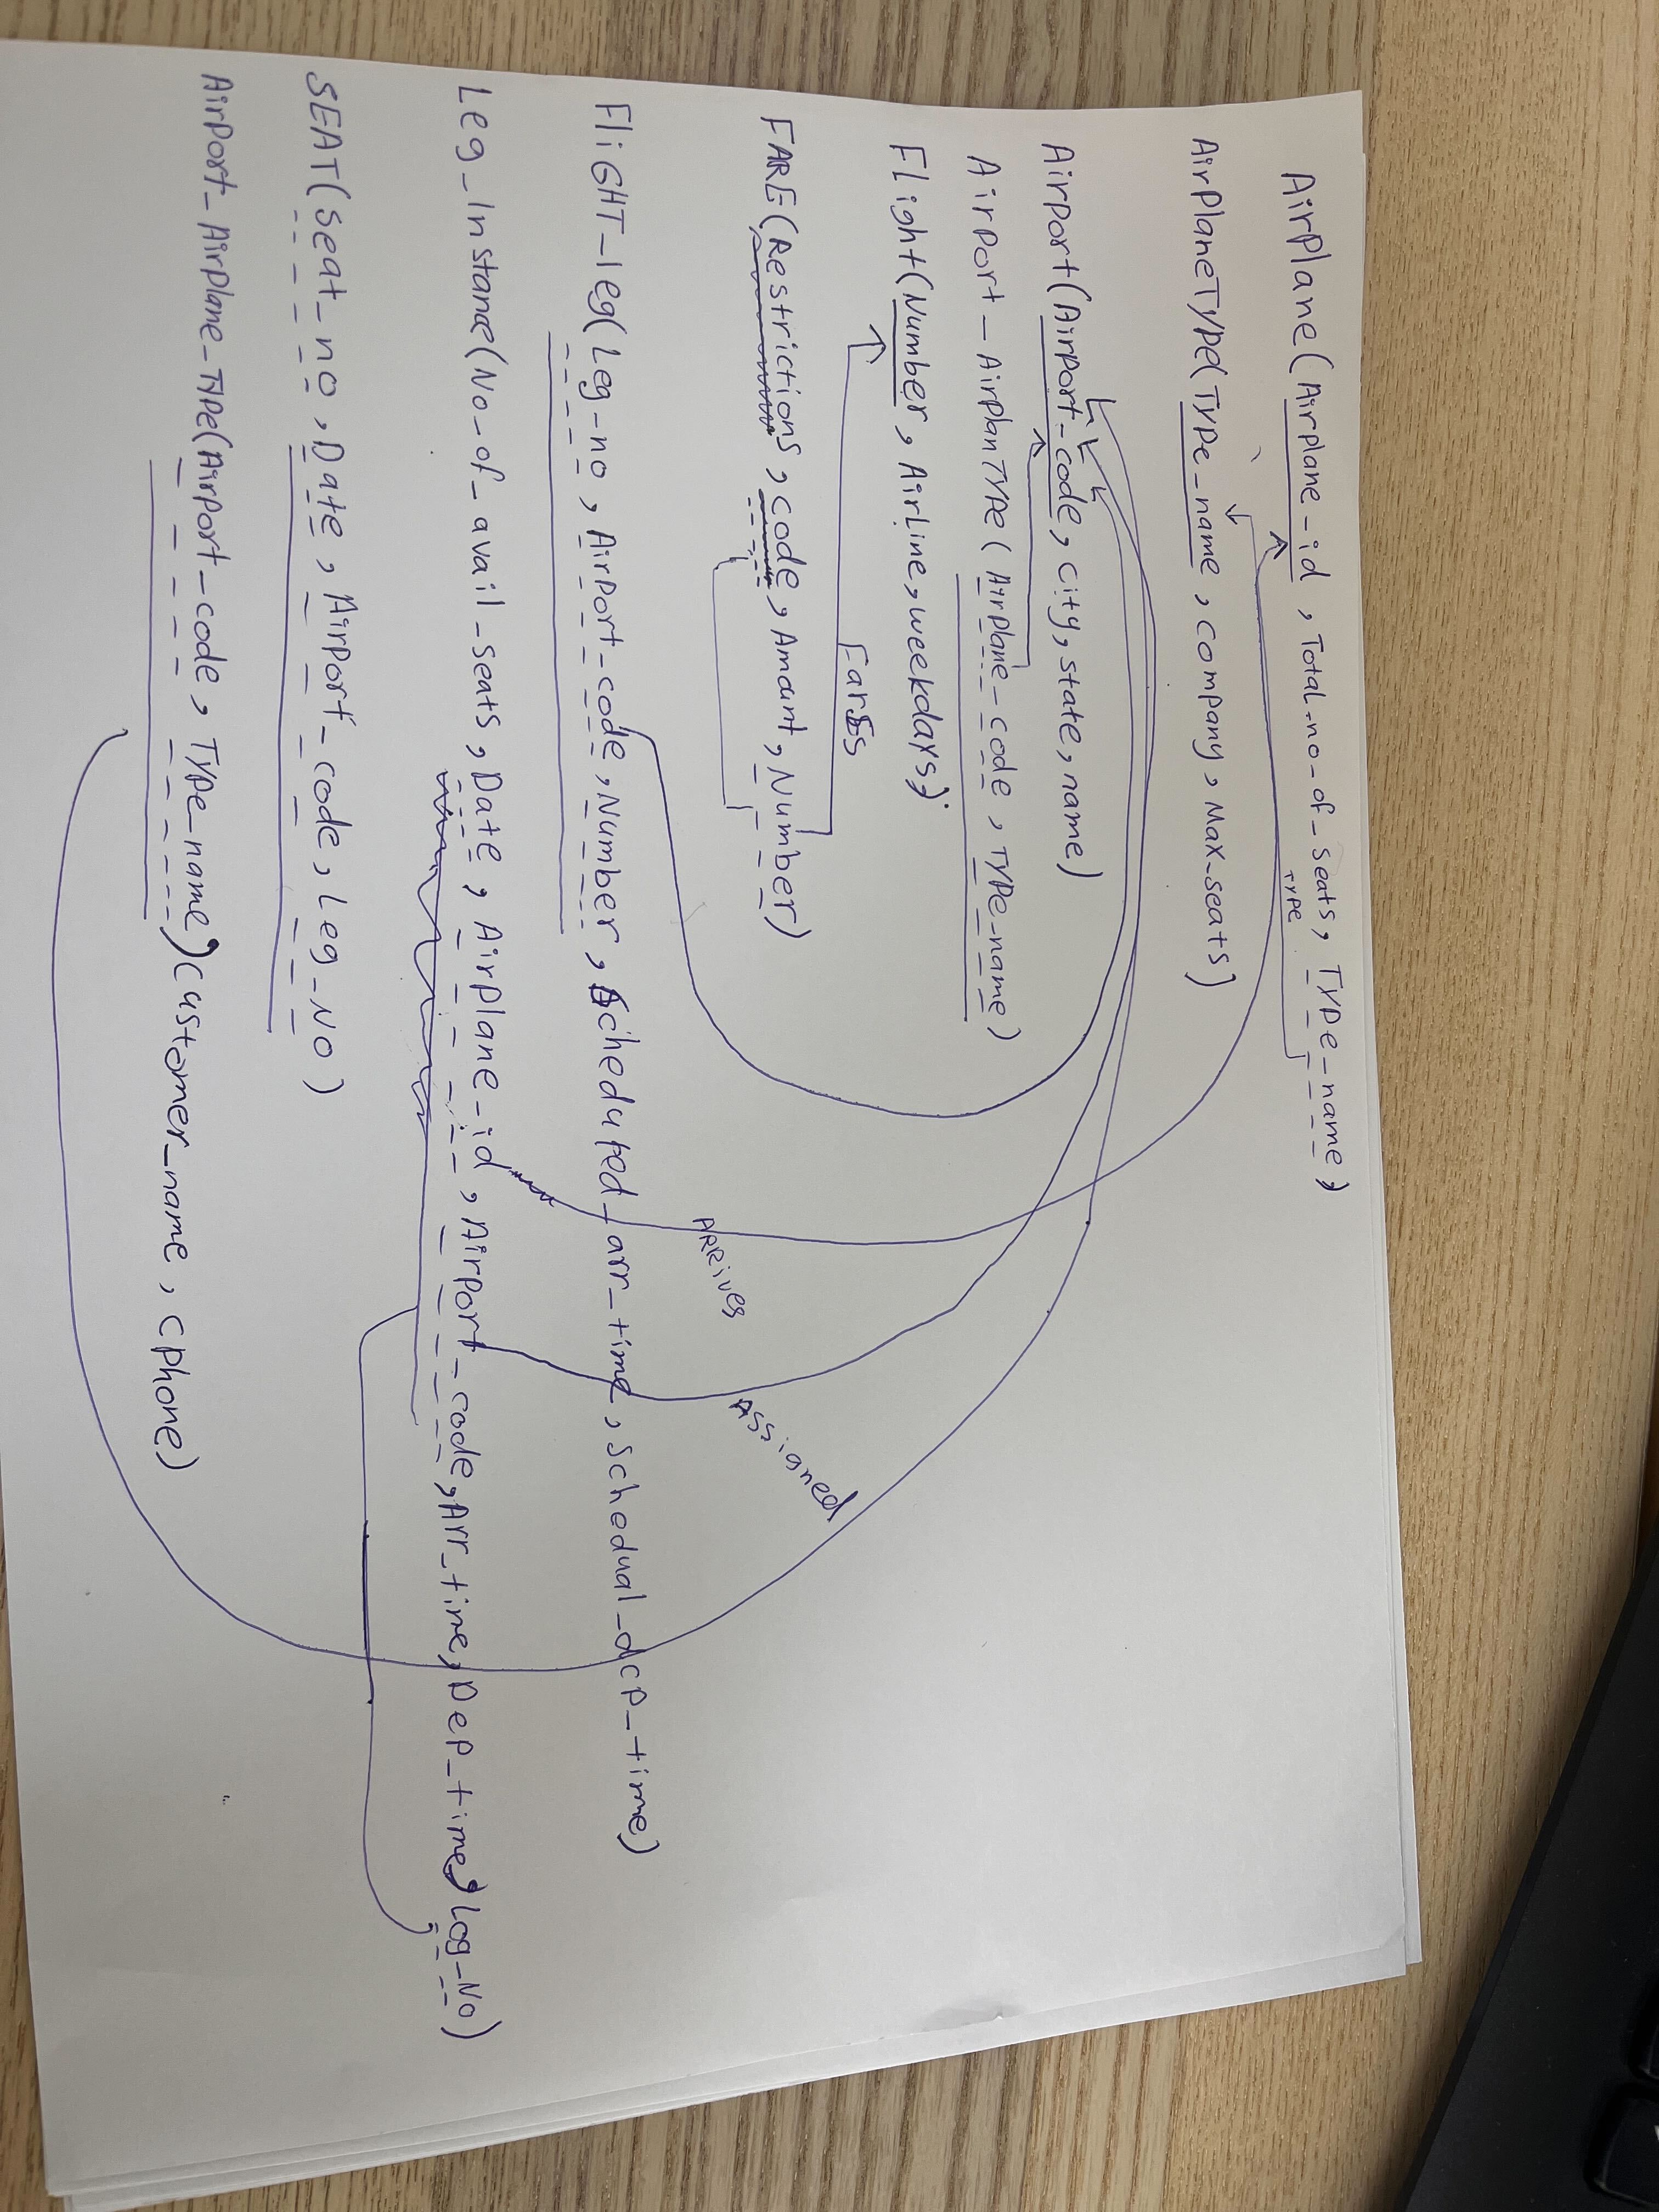 AirPlane(Airplane-id, Total-no-of-seats, TYPe-name)
TYPE
AirPlaneTYPe(TYPe-name, company, Max-seats)
Airport(Airport-code, city, state, name)
AirPort-AirplanTYPe(Airplane-code, TYPe-name)
Flight(Number, AirLine, weekdays)
Fares
FARE(Restrictions, code, Amount, Number)
ARRives
Assigned
FliGHT-leg(Leg-no, AirPort-code, Number, Scheduted-arr-time, schedual-dep-time)
Leg-Instance(No-of-avail-seats, Date, Airplane-id, AirPort-code, Arr-time, Dep-time, Log-No)
SEAT(seat-no, Date, AirPort-code, Leg-No)
AirPort-AirPlane-TYPe(AirPort-code, TYPe-name)(customer_name, cPhone)